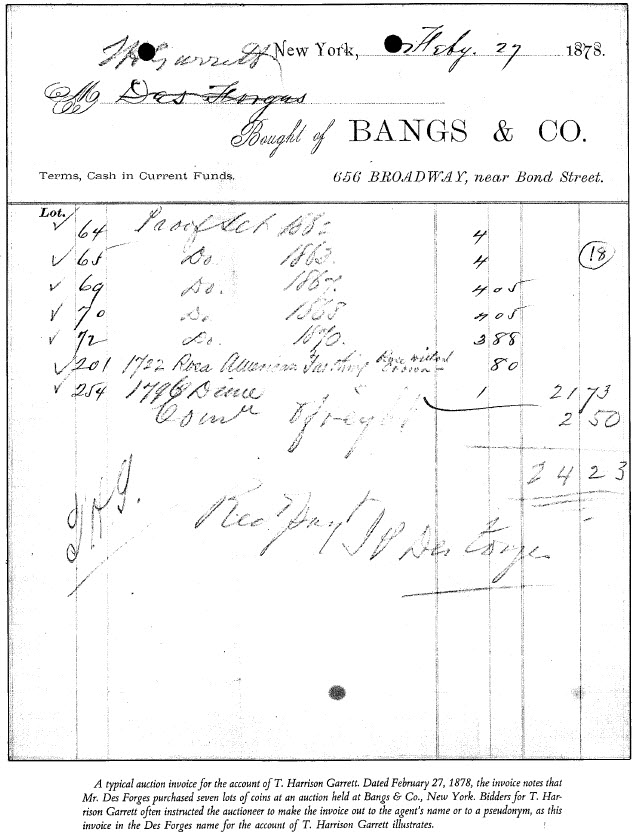 T H Garrett New York, Feby. 27 1878.
M Des Forges
Bought of BANGS & CO.
Terms, Cash in Current Funds. 656 BROADWAY, near Bond Street.
Lot.
✓ 64 Proof Set 4
✓ 65 Do. 1863. 4 18
✓ 69 Do. 1867. 4 05
✓ 70 Do. 1868 4 05
✓ 72 Do. 1870. 3 88
✓ 201 1722 Rosa Americana Farthing Rose without crown 80
✓ 254 1796 Dime 1 21 73
Com 2 50
24 23
T H G.
Rec'd Pay't J P Des Forges
A typical auction invoice for the account of T. Harrison Garrett. Dated February 27, 1878, the invoice notes that
Mr. Des Forges purchased seven lots of coins at an auction held at Bangs & Co., New York. Bidders for T. Har-
rison Garrett often instructed the auctioneer to make the invoice out to the agent's name or to a pseudonym, as this
invoice in the Des Forges name for the account of T. Harrison Garrett illustrates.